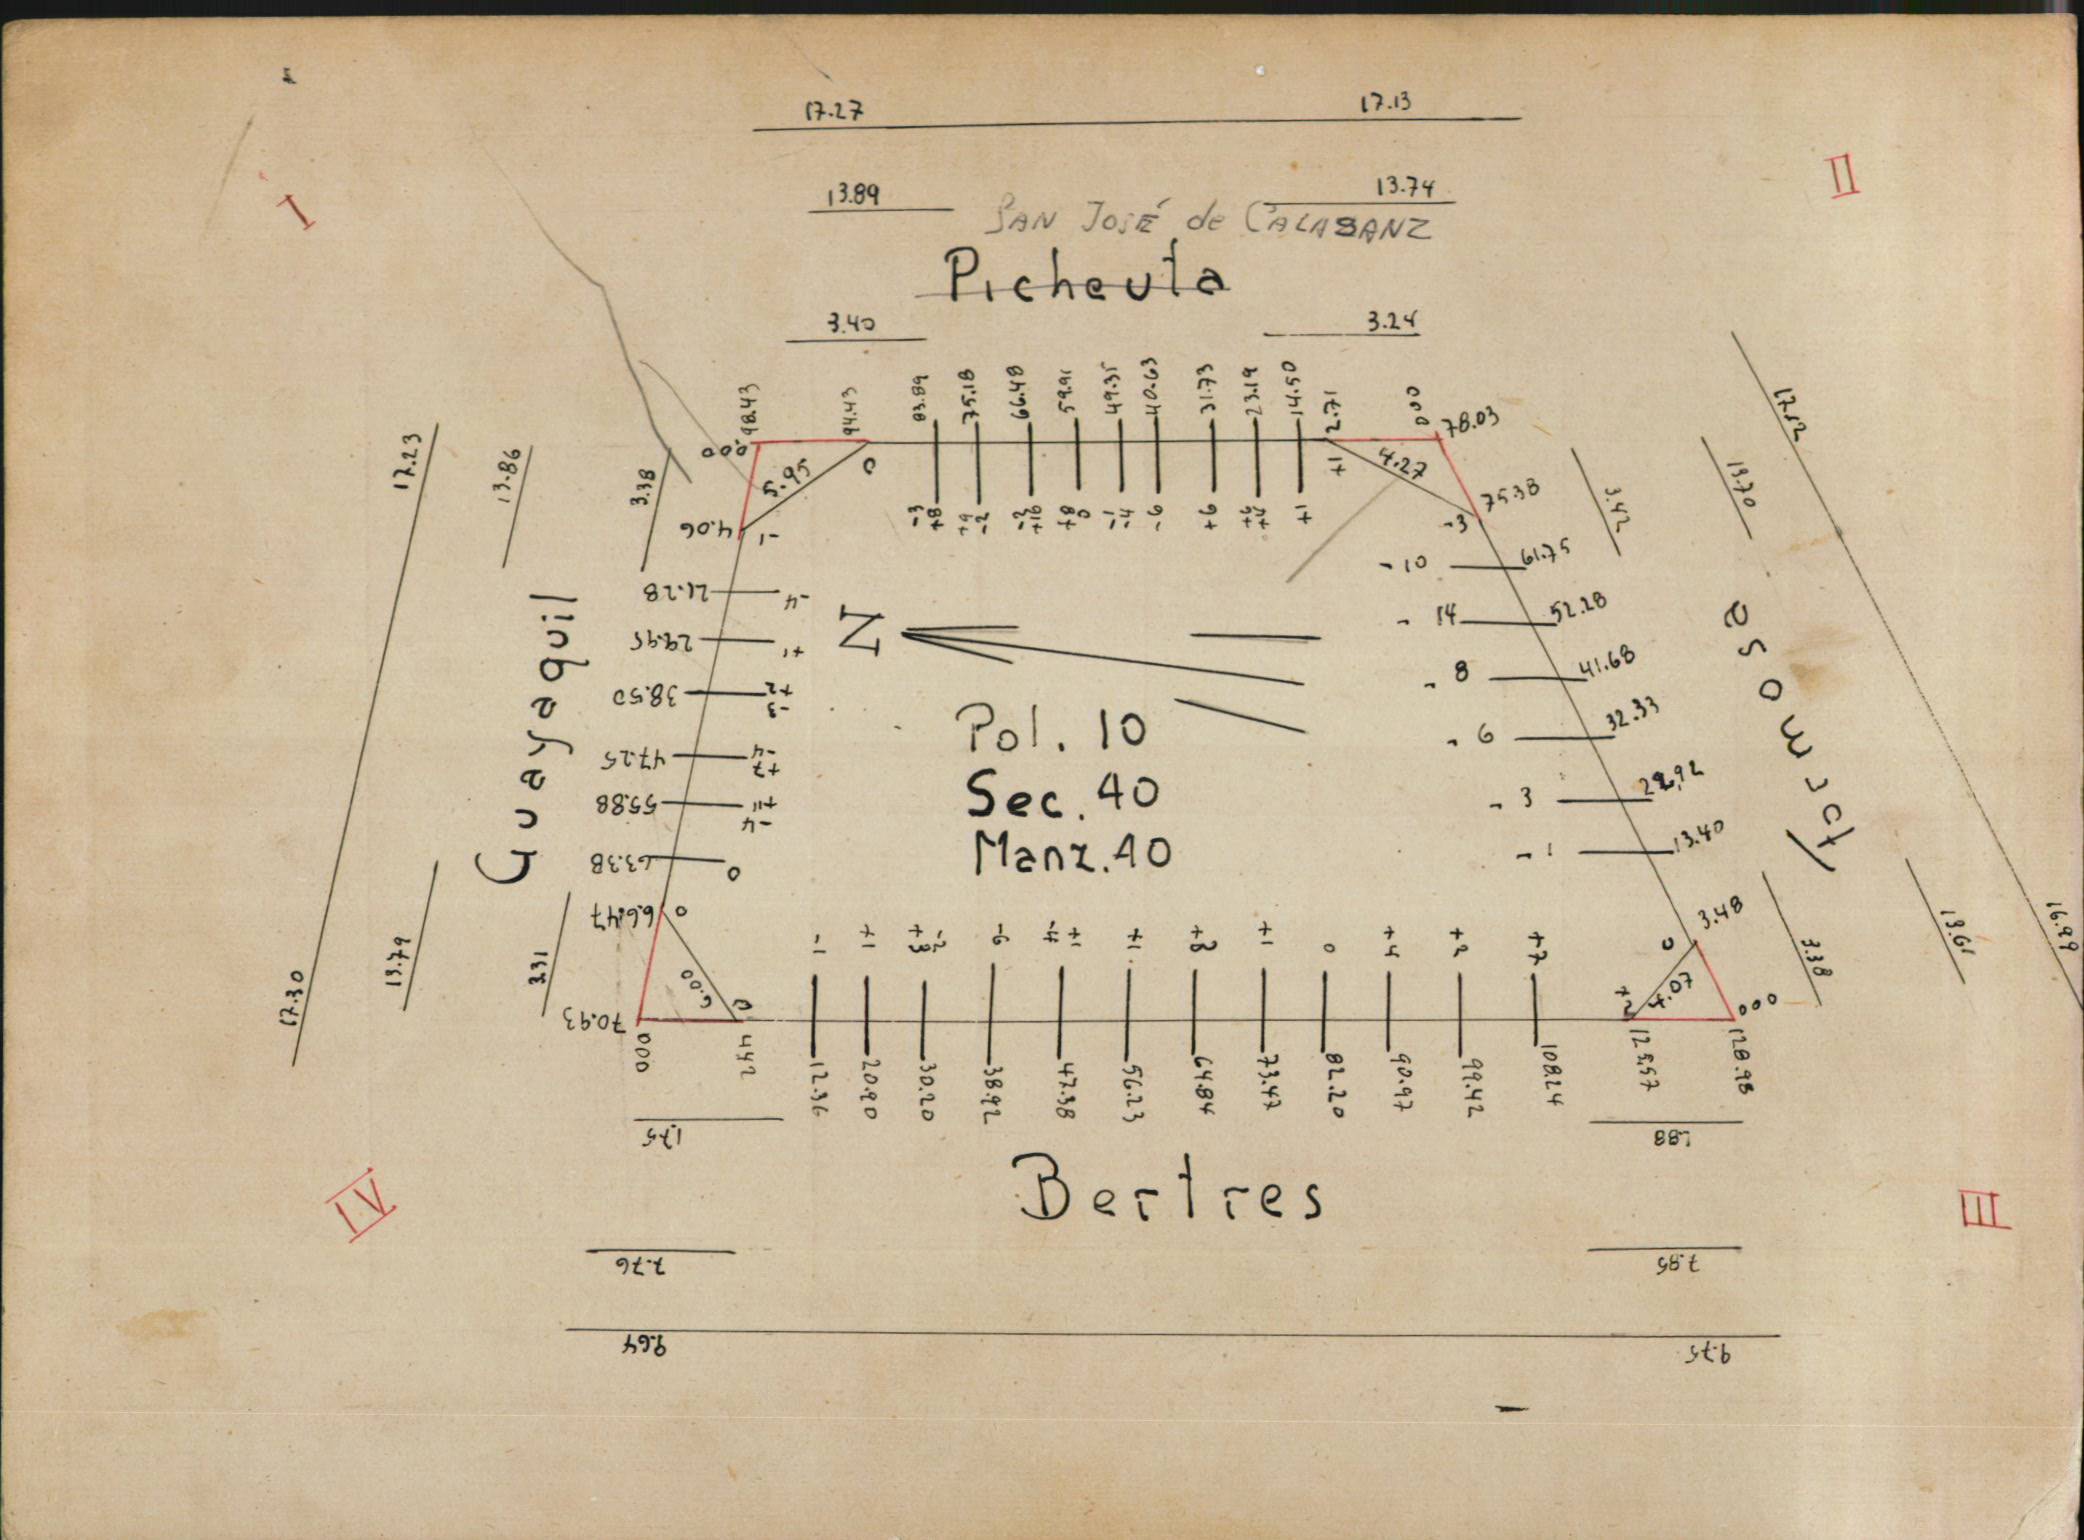 17.27 17.13
I
II
13.89 13.74
SAN JOSÉ de CALASANZ
Picheuta
3.40 3.24
98.43 94.43 83.89 75.18 66.48 59.91 49.35 40.63 31.73 23.19 14.50 2.71 000 78.03
000
5.95
0
-3 +8
+9 -2
+8 0
-1 -4
-6
+6
+1
+1
4.27
75.38
-3
4.06
-1
17.23
13.86
3.38
17.52
13.70
3.42
21.28 -4
29.95 +1
38.50 +2 -3
47.25 -4 +7
55.88 +11 -4
63.38 0
66.47 0
Guayaquil
N
Pol. 10
Sec. 40
Manz. 40
-10 61.75
-14 52.28
-8 41.68
-6 32.33
-3
-1 13.40
3.48
0
Formosa
17.30
13.79
3.31
16.99
13.61
3.38
6.00
0
4.07
+2
000
-1 +1 +3 -2 -6 -4 +1 +1 +1 0 +4 +2 +7
70.93
000 4.42 12.36 20.90 30.20 38.92 47.38 56.23 64.84 73.47 82.20 90.97 99.42 108.24 125.57 128.98
1.75 1.88
Bertres
IV
III
7.76 7.85
9.64 9.75